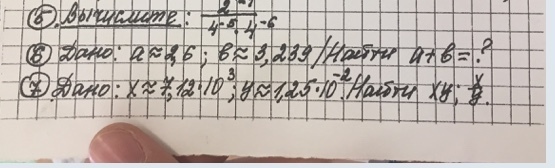 ⑤. Вычислите: 2 / 4⁻⁵ · 4⁻⁶
⑥ Дано: a≈2,6; b≈3,239 / Найти a+b=?
⑦. Дано: x≈7,12·10³; y≈1,25·10⁻². Найти xy; x/y.